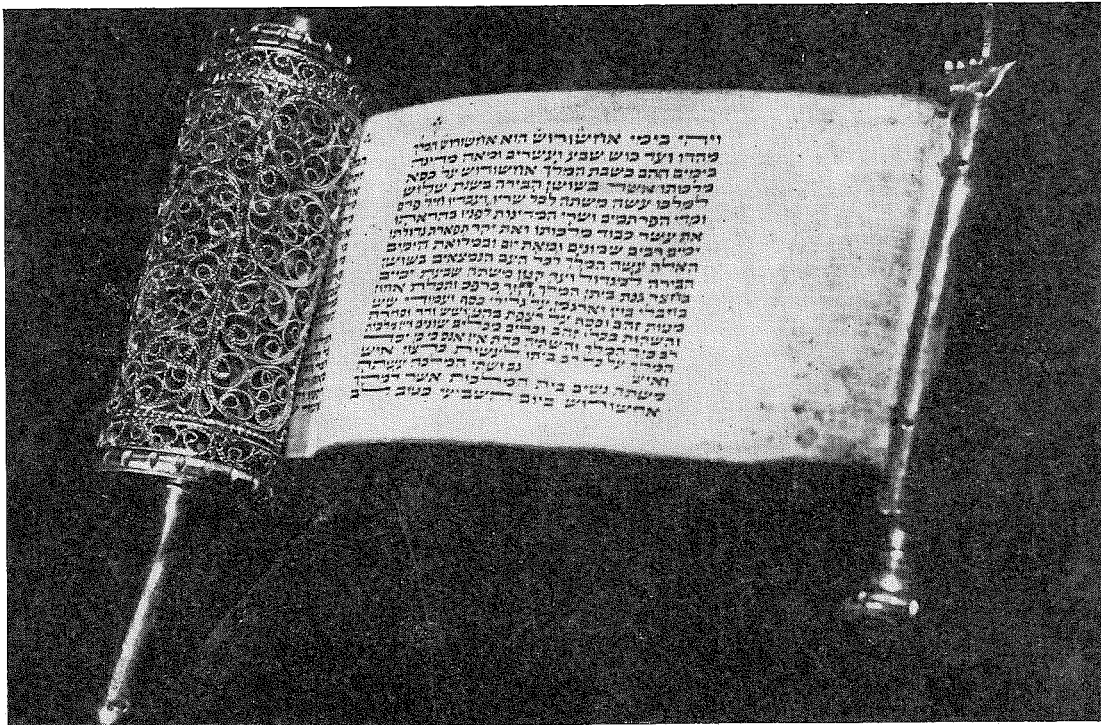 ויהי בימי אחשורוש הוא אחשורוש המלך
מהדו ועד כוש שבע ועשרים ומאה מדינה
בימים ההם כשבת המלך אחשורוש על כסא
מלכותו אשר בשושן הבירה בשנת שלוש
למלכו עשה משתה לכל שריו ועבדיו חיל פרס
ומדי הפרתמים ושרי המדינות לפניו בהראתו
את עשר כבוד מלכותו ואת יקר תפארת גדולתו
ימים רבים שמונים ומאת יום ובמלואת הימים
האלה עשה המלך לכל העם הנמצאים בשושן
הבירה למגדול ועד קטן משתה שבעת ימים
בחצר גנת ביתן המלך חור כרפס ותכלת אחוז
בחבלי בוץ וארגמן על גלילי כסף ועמודי שש
מטות זהב וכסף על רצפת בהט ושש ודר וסחרת
והשקות בכלי זהב וכלים מכלים שונים ויין מלכות
רב כיד המלך והשתיה כדת אין אנס כי כן יסד
המלך על כל רב ביתו לעשות כרצון איש
ואיש גם ושתי המלכה עשתה
משתה נשים בית המלכות אשר למלך
אחשורוש ביום השביעי כטוב לב